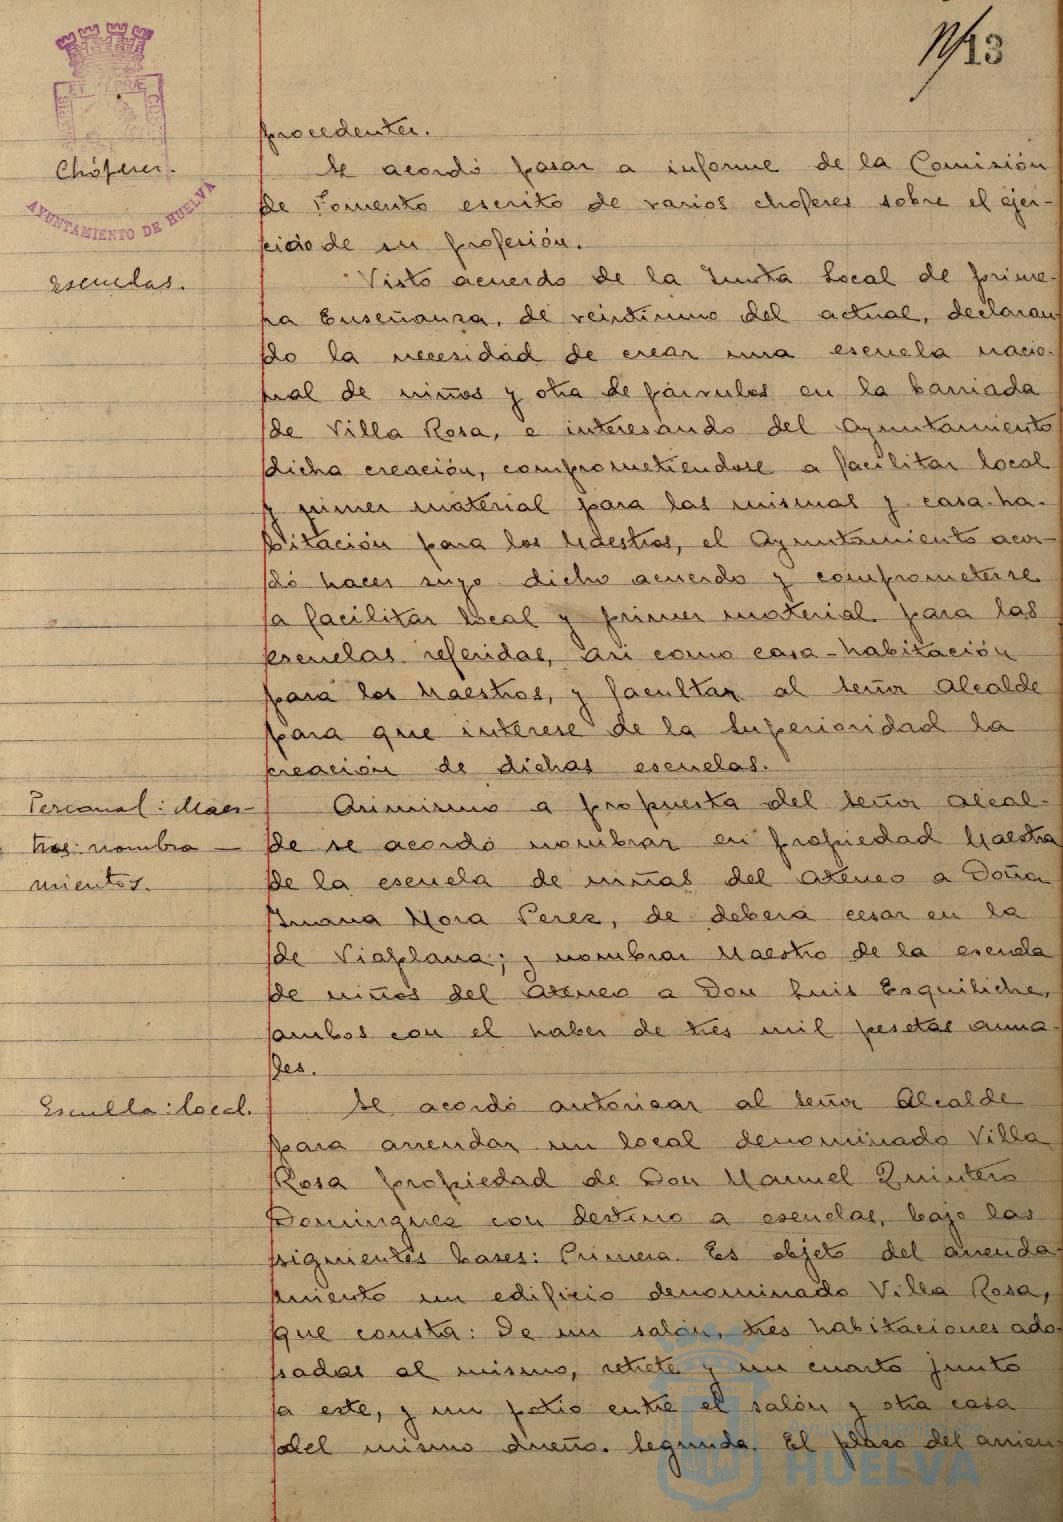 13
procedentes.
Chóferes.
Se acordó pasar a informe de la Comisión
de Fomento escrito de varios choferes sobre el ejer-
cicio de su profesión.
Escuelas.
Visto acuerdo de la Junta Local de prime-
ra Enseñanza, de veintiuno del actual, declaran-
do la necesidad de crear una escuela nacio-
nal de niños y otra de párvulos en la barriada
de Villa Rosa, e interesando del Ayuntamiento
dicha creación, comprometiendose a facilitar local
y primer material para las mismas y casa-ha-
bitación para los Maestros, el Ayuntamiento acor-
dó hacer suyo dicho acuerdo y comprometerse
a facilitar local y primer material para las
escuelas referidas, asi como casa-habitación
para los Maestros, y facultar al señor Alcalde
para que interese de la Superioridad la
creación de dichas escuelas.
Personal: Maes-
tros: nombra-
mientos.
Asimismo a propuesta del señor Alcal-
de se acordó nombrar en propiedad Maestra
de la escuela de niñas del Ateneo a Doña
Juana Mora Perez, de deberá cesar en la
de Viaplana; y nombrar Maestro de la escuela
de niños del Ateneo a Don Luis Esquiliche,
ambos con el haber de tres mil pesetas anua-
les.
Escuela: local.
Se acordó autorizar al señor Alcalde
para arrendar un local denominado Villa
Rosa propiedad de Don Manuel Quintero
Dominguez con destino a escuelas, bajo las
siguientes bases: Primera. Es objeto del arrenda-
miento un edificio denominado Villa Rosa,
que consta: De un salón, tres habitaciones ado-
sadas al mismo, retrete y un cuarto junto
a este, y un patio entre el salón y otra casa
del mismo dueño. Segunda. El plazo del arrien-
AYUNTAMIENTO DE HUELVA
HUELVA